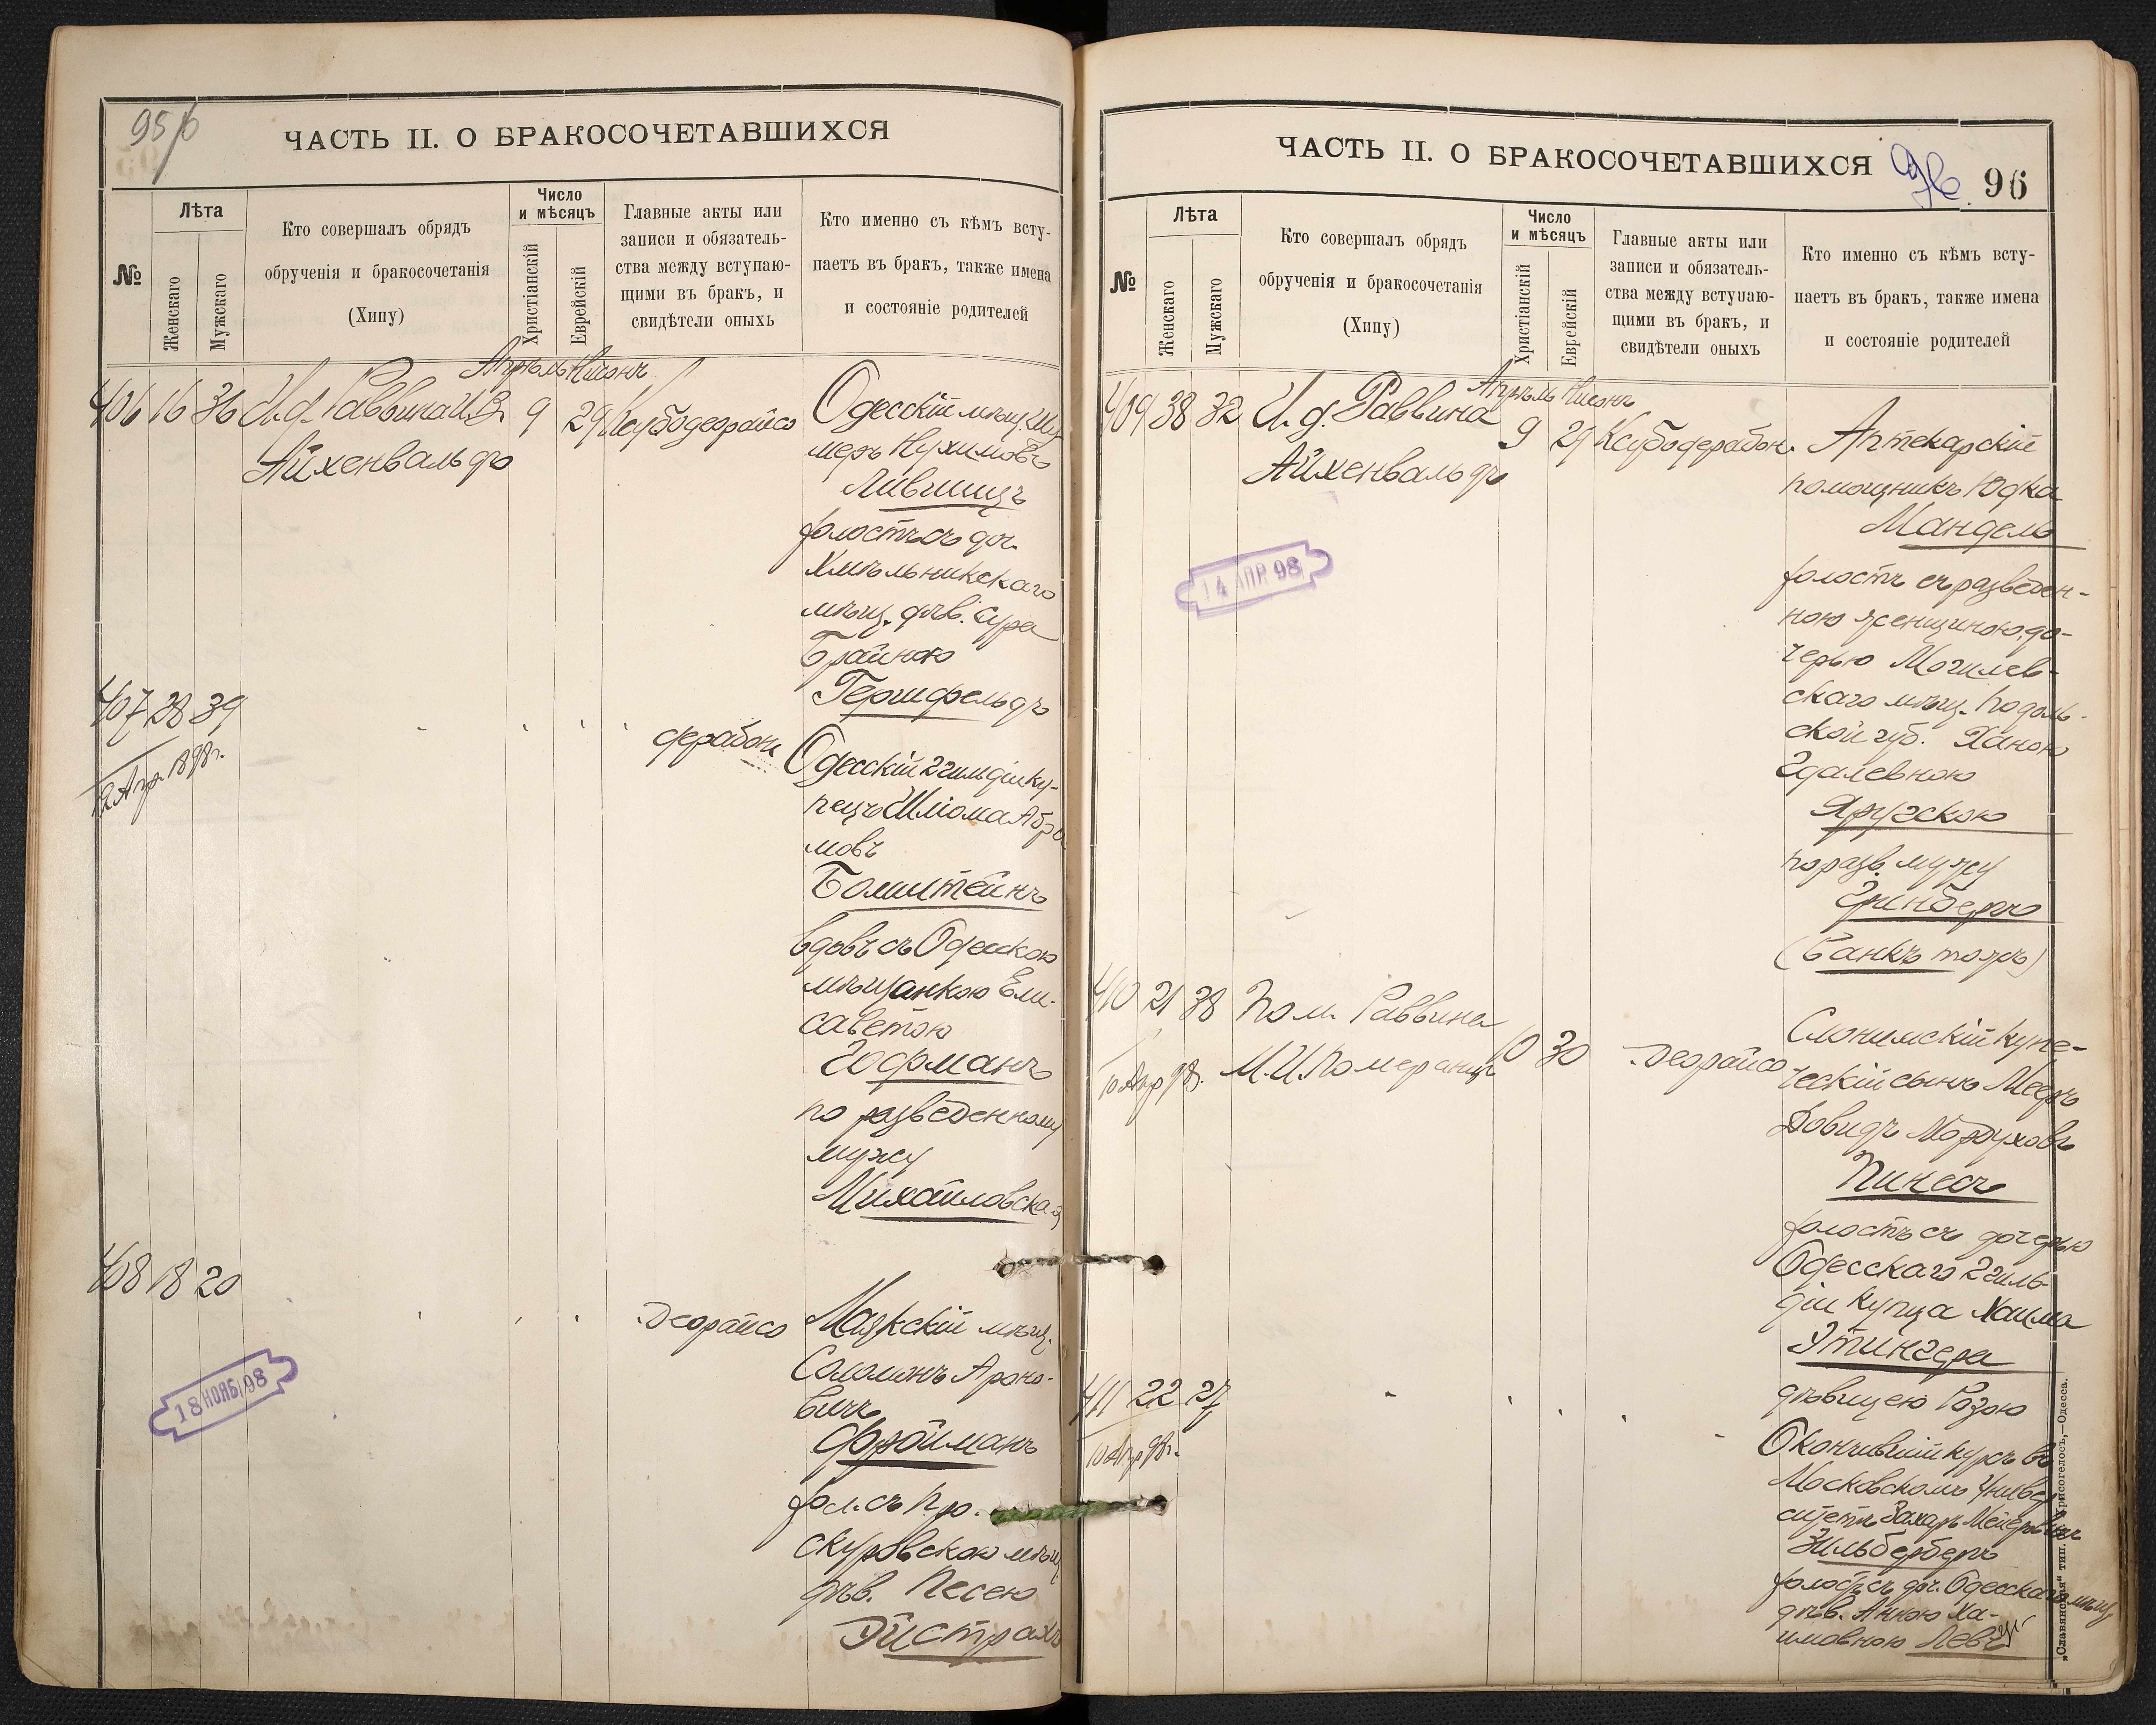 95/б
ЧАСТЬ II. О БРАКОСОЧЕТАВШИХСЯ
№
Лѣта
Женскаго
Мужскаго
Кто совершалъ обрядъ
обрученія и бракосочетанія
(Хипу)
Число
и мѣсяцъ
Христіанскій
Еврейскій
Главные акты или
записи и обязатель-
ства между вступаю-
щими въ бракъ, и
свидѣтели оныхъ
Кто именно съ кѣмъ всту-
паетъ въ бракъ, также имена
и состояніе родителей
Апрѣль Нисонъ
406 16 36 И.д. Раввина
Айхенвальдъ
9 29 Ксубодеорайсо
Одесскій мѣщ.
меръ Нухимовъ
Лившицъ
холостъ съ доч.
Хмѣльникскаго
мѣщ. дѣв. Сура
Брайною
Гершфельдъ
407 28 39
12 Апр. 1898г.
дерабон.
Одесскій 2 гильдіи ку-
пецъ Шлiома Абра
мовъ
Бомштейнъ
вдовъ съ Одесскою
мѣщанкою Ели-
саветою
Гофманъ
по разведенному
мужу
Михайловская
408 18 20
18 НОЯБ 98
Деорайсо
Маякскій мѣщ.
Соломонъ Ароно-
вичъ
Фройманъ
хол. съ Про-
скуровскою мѣщ
дѣв. Песею
Дистрахъ
ЧАСТЬ II. О БРАКОСОЧЕТАВШИХСЯ
96
96
№
Лѣта
Женскаго
Мужскаго
Кто совершалъ обрядъ
обрученія и бракосочетанія
(Хипу)
Число
и мѣсяцъ
Христіанскій
Еврейскій
Главные акты или
записи и обязатель-
ства между вступаю-
щими въ бракъ, и
свидѣтели оныхъ
Кто именно съ кѣмъ всту-
паетъ въ бракъ, также имена
и состояніе родителей
Апрѣль Нисонъ
409 38 32 И.д. Раввина
Айхенвальдъ
9 29 Ксубодерабон.
14 АПР 98
Аптекарскій
помощникъ Юдка
Мандель
холостъ съ разведен-
ною женщиною, до-
черью Могилев-
скаго мѣщ. Подоль-
ской губ. Ханою
Гдалевною
Яругскою
по разв. мужу
Гринбергъ
410 21 38 Пом. Раввина
М.И. Померанцъ
10 30
10 Апр 98.
Деорайсо
Слонимскій купе-
ческій сынъ Мееръ
Довидъ Мордуховъ
Пинесъ
холостъ съ дочерью
Одесскаго 2 гиль-
діи купца Хаима
Этингера
дѣвицею Розою
411 22 27
10 Апр 98г.
Окончившій курсъ въ
Московскомъ Универ
ситетѣ Захаръ Мейеровичъ
Зильбербергъ
холостъ съ доч. Одесскаго мѣщ
дѣв. Анною Ха-
имовною
„Славянская“ тип. Хрисогелосъ,—Одесса.